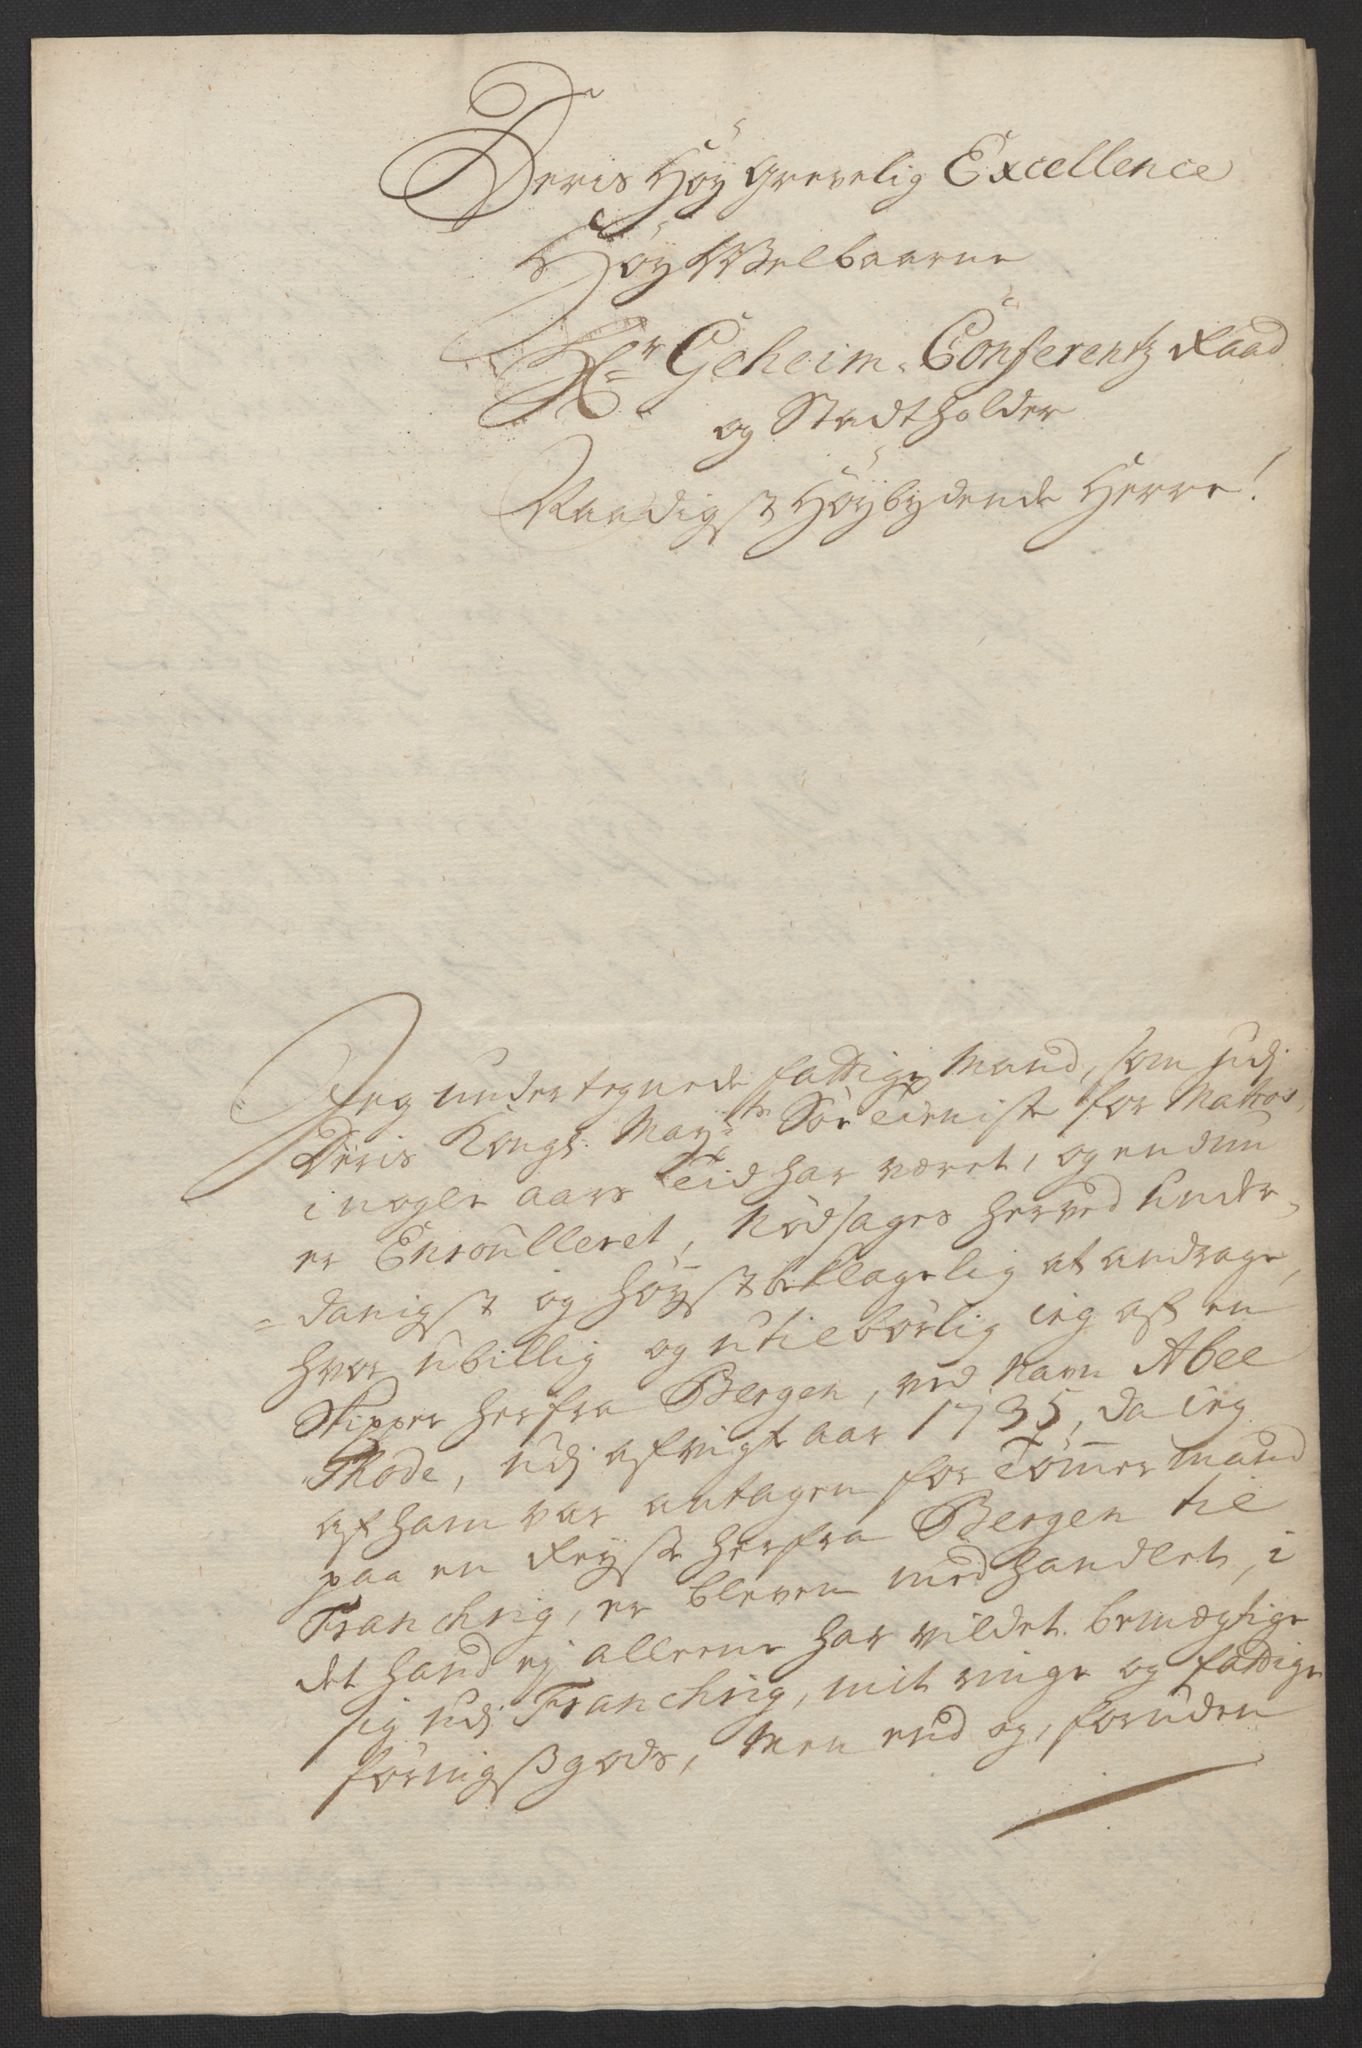 Deris Höy Grevelig Excellence
Höy Welbaarne
Hr Geheim-Conferentz Raad
og Stadtholder
Naadigst Höybydende Herre!
Jeg undertegnede fattige Mand, som udj
Deris Kongl. Mayts Söe Tieniste for Matros
i nogle aars Tid har været, og endnu
er Enroulleret, Nödsages herved Under-
=danigst og höyst beklagelig at andrage,
hvor ubillig og utilbörlig ieg af en
Skipper herfra Bergen, ved Navn Abel
Rhode, udj afvigte aar 1735, da ieg
af ham var antagen for Tömmermand
paa en Reyse herfra Bergen til
Franchrig, er bleven medhandlet, i
det hand ej alleene har vildet bemægtige
sig udj Franchrig, mit ringe og fattige
förnigßgods, Men end og, foruden